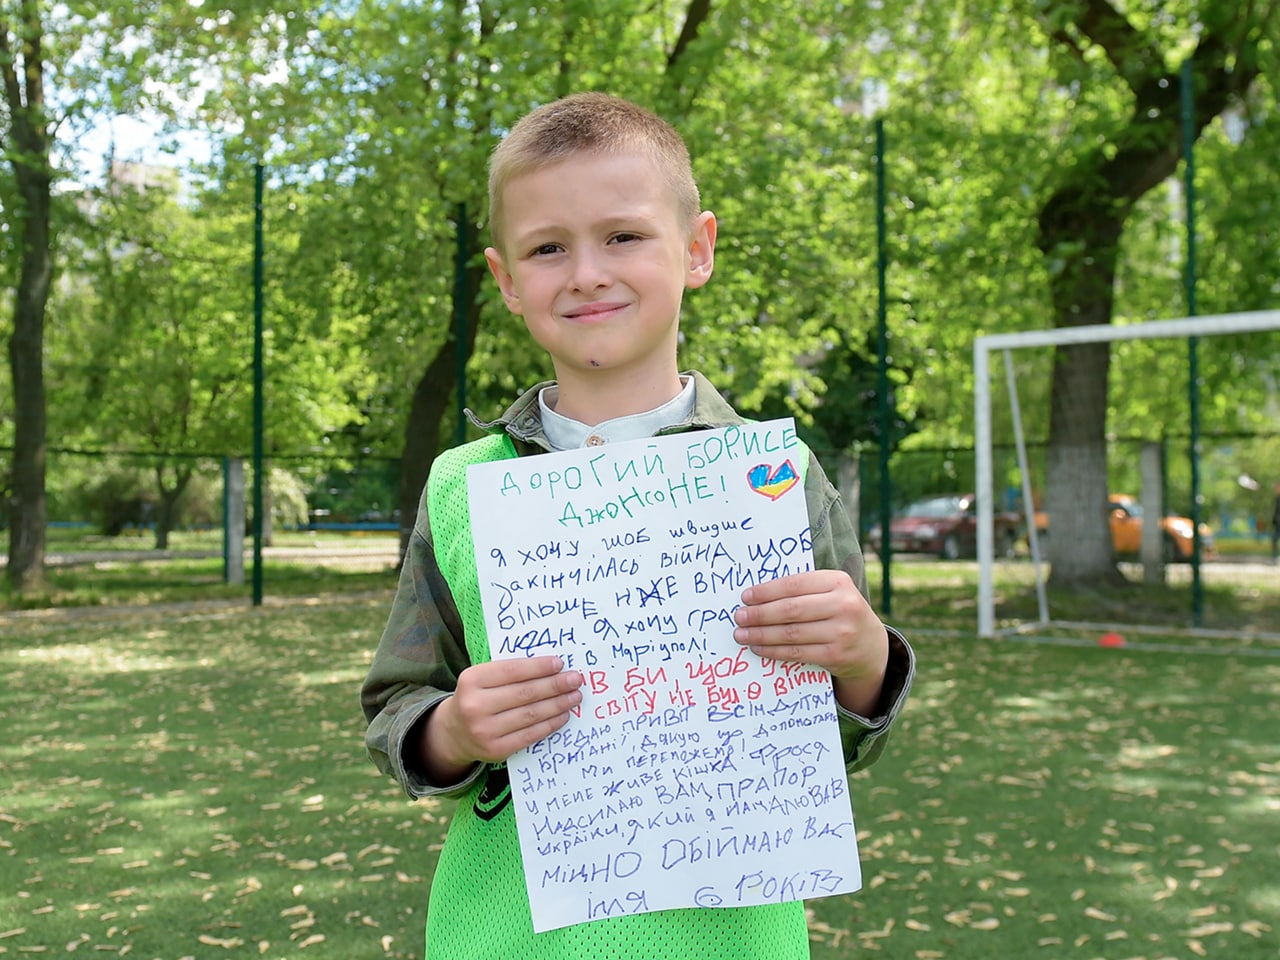 ДОРОГИЙ БОРИСЕ
ДЖОНСОНЕ!
Я ХОЧУ, ЩОБ ШВИДШЕ
ЗАКІНЧІЛАСЬ ВІЙНА, ЩОБ
БІЛЬШЕ НЖЕ ВМИРАЛИ
ЛЮДИ. Я ХОЧУ ГРА
В МАРІУПОЛІ.
ІВ БИ, ЩОБ У
СВІТУ НЕ БУЛО ВІЙНИ
ПЕРЕДАЮ ПРИВІТ ВСІМ ДІТЯМ
У БРИТАНІЇ, ДЯКУЮ ЩО ДОПОМОГАЄТЕ
НАМ. МИ ПЕРЕМОЖЕМ!
У МЕНЕ ЖИВЕ КІШКА ФРОСЯ
НАДСИЛАЮ ВАМ, ПРАПОР
УКРАЇНИ, ЯКИЙ Я НАМАЛЮВАВ
МІЦНО ОБІЙМАЮ ВАС
ІЛЛЯ 6 РОКІВ